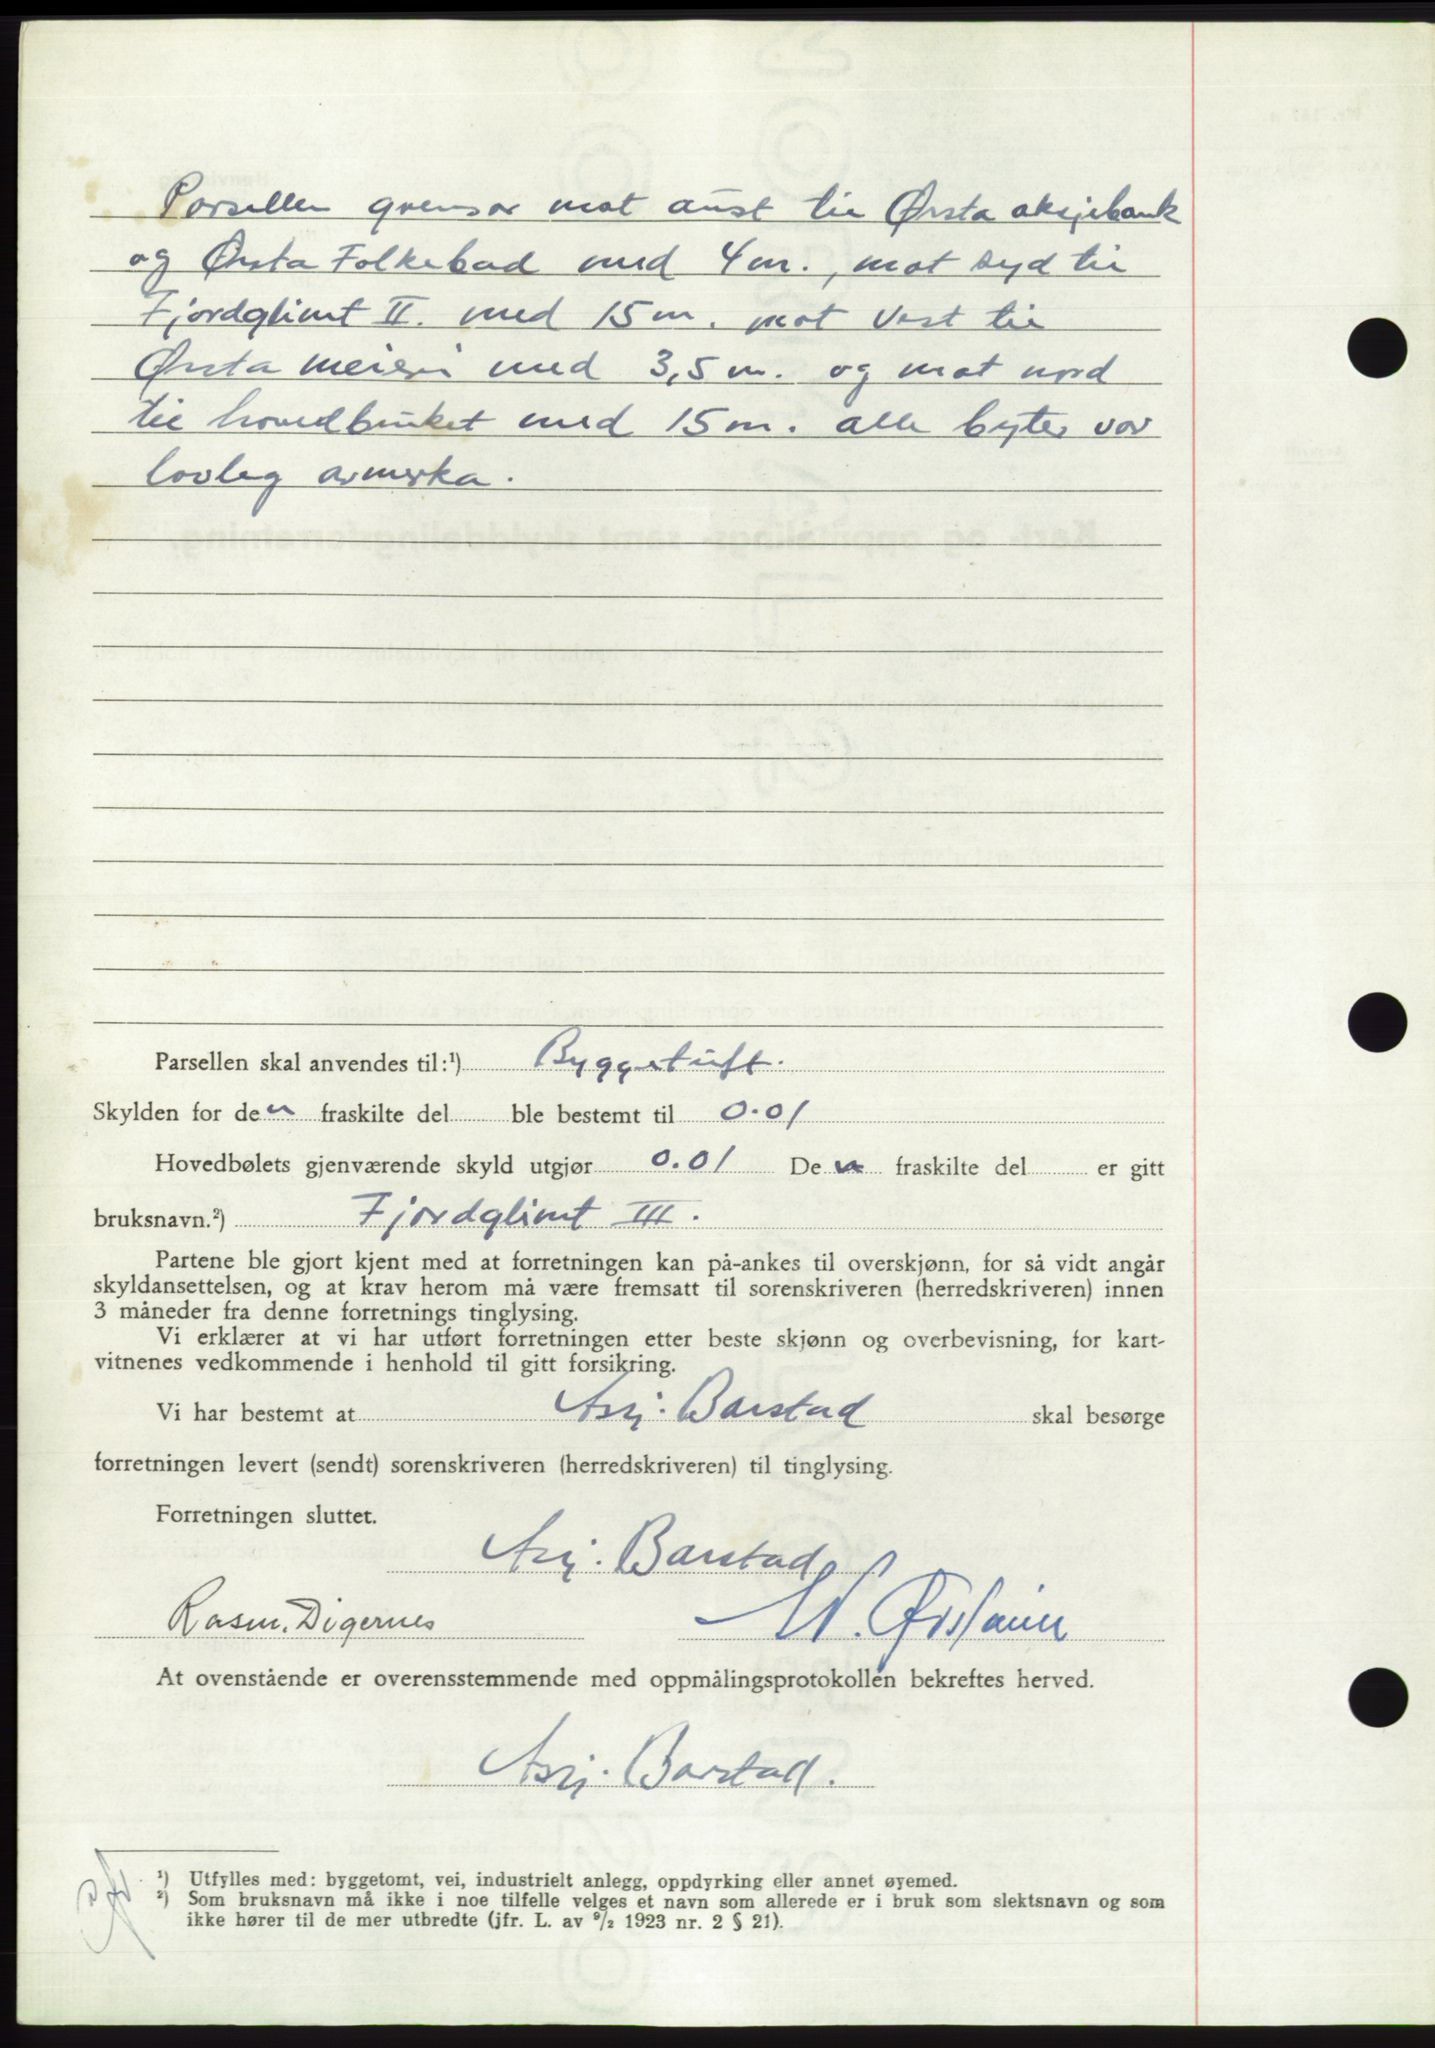 Parsellen grensar mot aust til Ørsta aksjebank
og Ørsta Folkebad med 4 m., mot syd til
Fjordglimt II. med 15 m. mot vest til
Ørsta meieri med 3,5 m. og mot nord
til hovedbruket med 15 m. alle byter var
lovleg avmerka.
Parsellen skal anvendes til:¹) Byggetuft.
Skylden for den fraskilte del ble bestemt til 0.01
Hovedbølets gjenværende skyld utgjør 0.01 Den fraskilte del er gitt
bruksnavn.²) Fjordglimt III.
Partene ble gjort kjent med at forretningen kan på-ankes til overskjønn, for så vidt angår
skyldansettelsen, og at krav herom må være fremsatt til sorenskriveren (herredskriveren) innen
3 måneder fra denne forretnings tinglysing.
Vi erklærer at vi har utført forretningen etter beste skjønn og overbevisning, for kart-
vitnenes vedkommende i henhold til gitt forsikring.
Vi har bestemt at Asbj. Barstad skal besørge
forretningen levert (sendt) sorenskriveren (herredskriveren) til tinglysing.
Forretningen sluttet.
Asbj. Barstad
Rasm. Digernes
At ovenstående er overensstemmende med oppmålingsprotokollen bekreftes herved.
Asbj. Barstad.
¹) Utfylles med: byggetomt, vei, industrielt anlegg, oppdyrking eller annet øyemed.
²) Som bruksnavn må ikke i noe tilfelle velges et navn som allerede er i bruk som slektsnavn og som
ikke hører til de mer utbredte (jfr. L. av 9/2 1923 nr. 2 § 21).